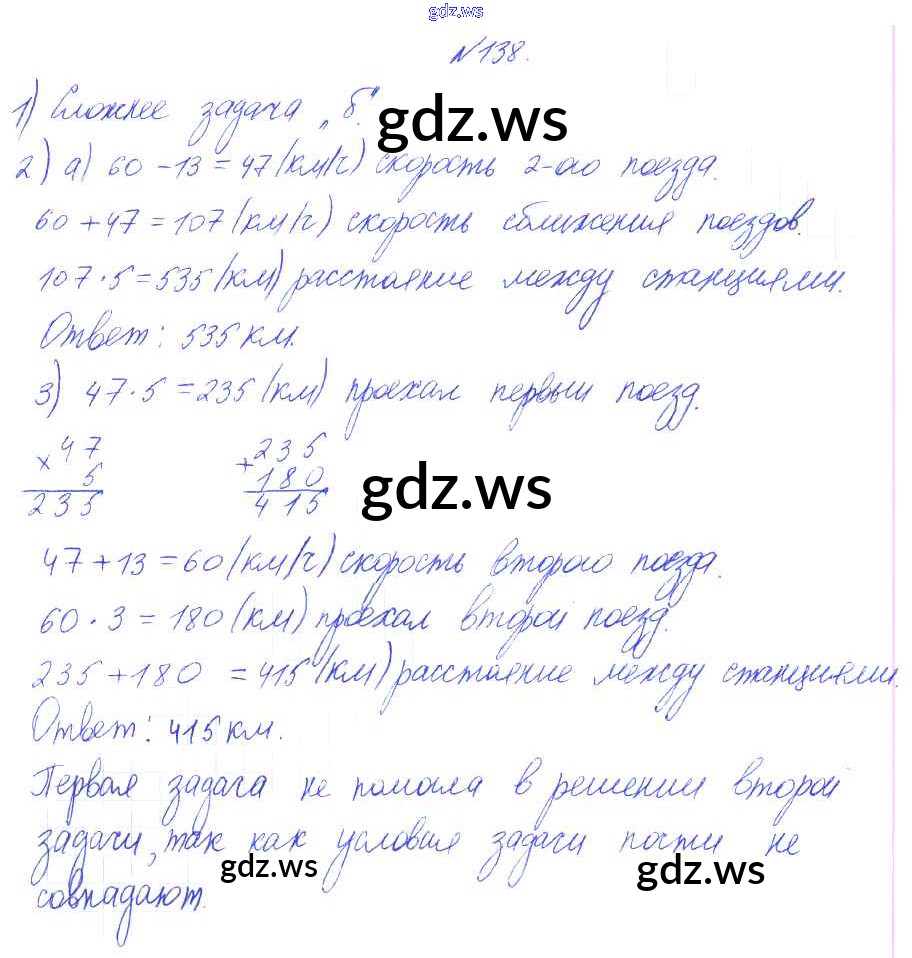 gdz.ws
№138.
1) Сложнее задача „б".
gdz.ws
2) а) 60 - 13 = 47 (км/ч) скорость 2-ого поезда.
60 + 47 = 107 (км/ч) скорость сближения поездов.
107 · 5 = 535 (км) расстояние между станциями.
Ответ: 535 км.
3) 47 · 5 = 235 (км) проехал первый поезд.
× 47
5
235
+ 235
180
415
gdz.ws
47 + 13 = 60 (км/ч) скорость второго поезда.
60 · 3 = 180 (км) проехал второй поезд.
235 + 180 = 415 (км) расстояние между станциями.
Ответ: 415 км.
Первая задача не помогла в решении второй
задачи, так как условия задачи почти не
совпадают.
gdz.ws
gdz.ws